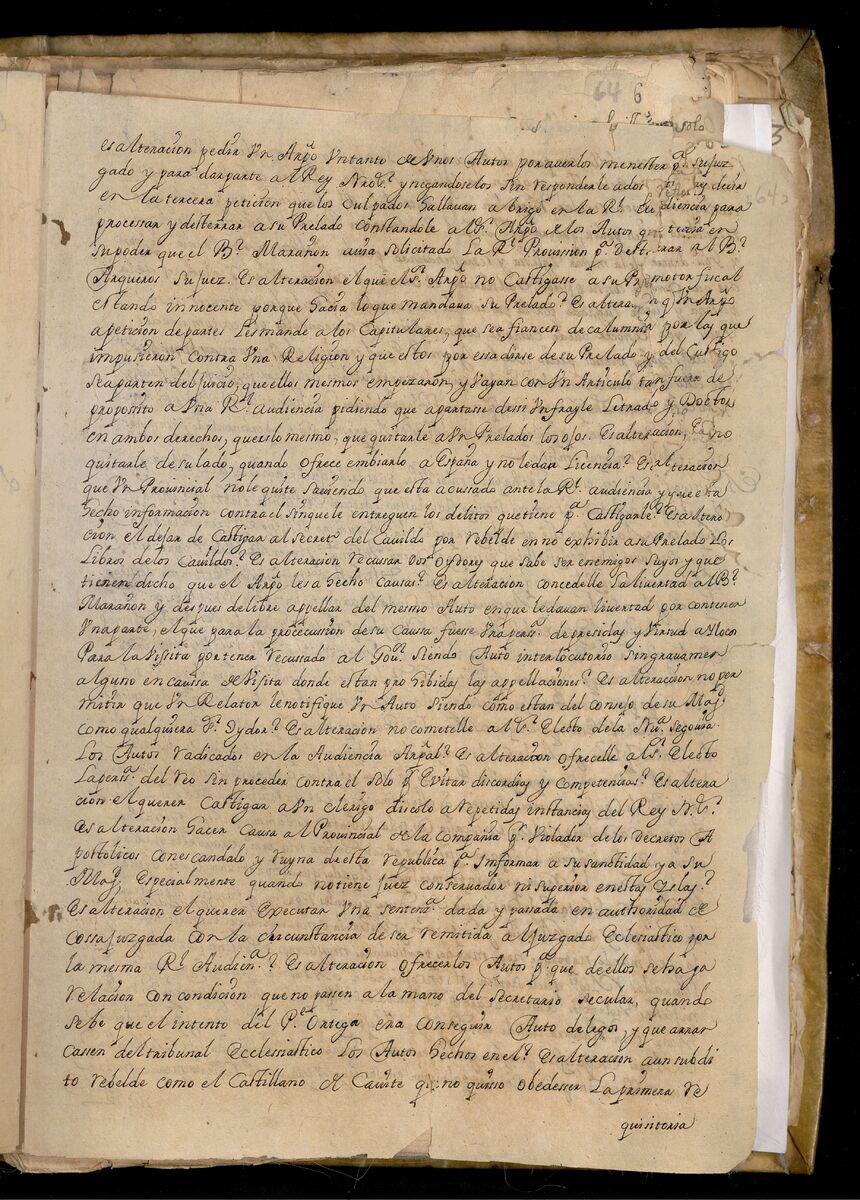 64 6
solo
es alteracion pedir Un Arçpo Untanto de Unos Autos por auerlos menester pª. su juz
gado y para dar parte al Rey Nrō Sr. y negandoselos sin responderle a dos y decir
en la tercera peticion que los Culpados hallauan abrigo en la Rl. Audiencia para
processar y desterrar a su Prelado constandole al Sr. Arçpo de los Autos q tenia en
su poder que el Br. Marañon auia solicitado La Rl. Prouission pª. desterrar al Br.
Arqueros su juez. Es alteracion el que el Sr. Arçpo no Castigasse a su Promotor fiscal
estando innocente porque hacia lo que mandaua su Prelado? Es alteracion q Un Arçpo
a peticion de partes Les mande a los Capitulares, que se afiancen de calumnia por las que
impusieron contra Una Religion y que estos por euadirse de su Prelado y del Castigo
se aparten del juicio, que ellos mesmos empezaron, y Vayan con Un Articulo tan fuera de
proposito a Una Rl. audiencia pidiendo que apartasse de si Un frayle Letrado y Doctor
en ambos derechos, que es lo mesmo, que quitarle a Un Prelado los ojos. Es alteracion, no
quitarle de su lado, quando ofrece embiarlo a España y no le dan Licencia? Es alteracion
que Un Prouincial no le quite sauiendo que esta acussado ante la Rl. audiencia y que esta
hecho informacion contra el sin que le entreguen los delitos que tiene pª. Castigarle? Es altera
cion el dejar de Castigar al Secretº. del Cauildo por rebelde en no exhibir a su Prelado los
Libros de los Cauildos? Es alteracion recussar dos oydores que sabe ser enemigos suyos y que
tienen dicho que el Arçpo les a hecho causas? Es alteracion concedelle La liuertad al Br.
Marañon y despues de libre appellar del mesmo Auto en que le dauan liuertad por contener
Una parte, el que para la prosecussion de su Causa fuesse Una persª. de
Para la Visita por tener recussado al Gouor. siendo Auto interlocutorio sin grauamen
alguno en caussa de Visita donde estan prohibidas las appellaciones? Es alteracion no per
mitir que Un Relator le notifique Un Auto siendo como es tan del consejo de su Magd
como qualquiera Sr. Oydor? Es alteracion no cometelle al Sr. Electo de la Nuª. Segouia
Los Autos radicados en la Audiencia Arçpal? Es alteracion ofrecelle al Sr. Electo
La persª. del reo sin proceder contra el solo pr Euitar discordias y Competencias? Es altera
cion el querer Castigar a Un clerigo discolo a repetidas instancias del Rey N. Sr.
Es alteracion hacer Causa al Prouincial de la Compañia pr. Violador de los decretos A
postolicos con escandalo y ruyna de esta republica pª. Informar a su sanctidad y a su
Magd, Especialmente quando no tiene juez conseruador ni superior en estas Yslas?
Es alteracion el querer Executar Una sentencª. dada y passada en authoridad de
cossa juzgada con la circunstancia de ser remitida al juzgado Eclesiastico por
la mesma Rl. Audienª.? Es alteracion ofrecer los Autos pª. que de ellos se haga
relacion con condicion que no passen a la mano del Secretario secular, quando
sabe que el intento del Pe. Ortega era conseguir Auto de legos, y que arran
cassen del tribunal Ecclesiastico Los Autos hechos en el? Es alteracion a un subdi
to rebelde como el Castillano de Cauite que no quisso obedesser La primera re
quisitoria